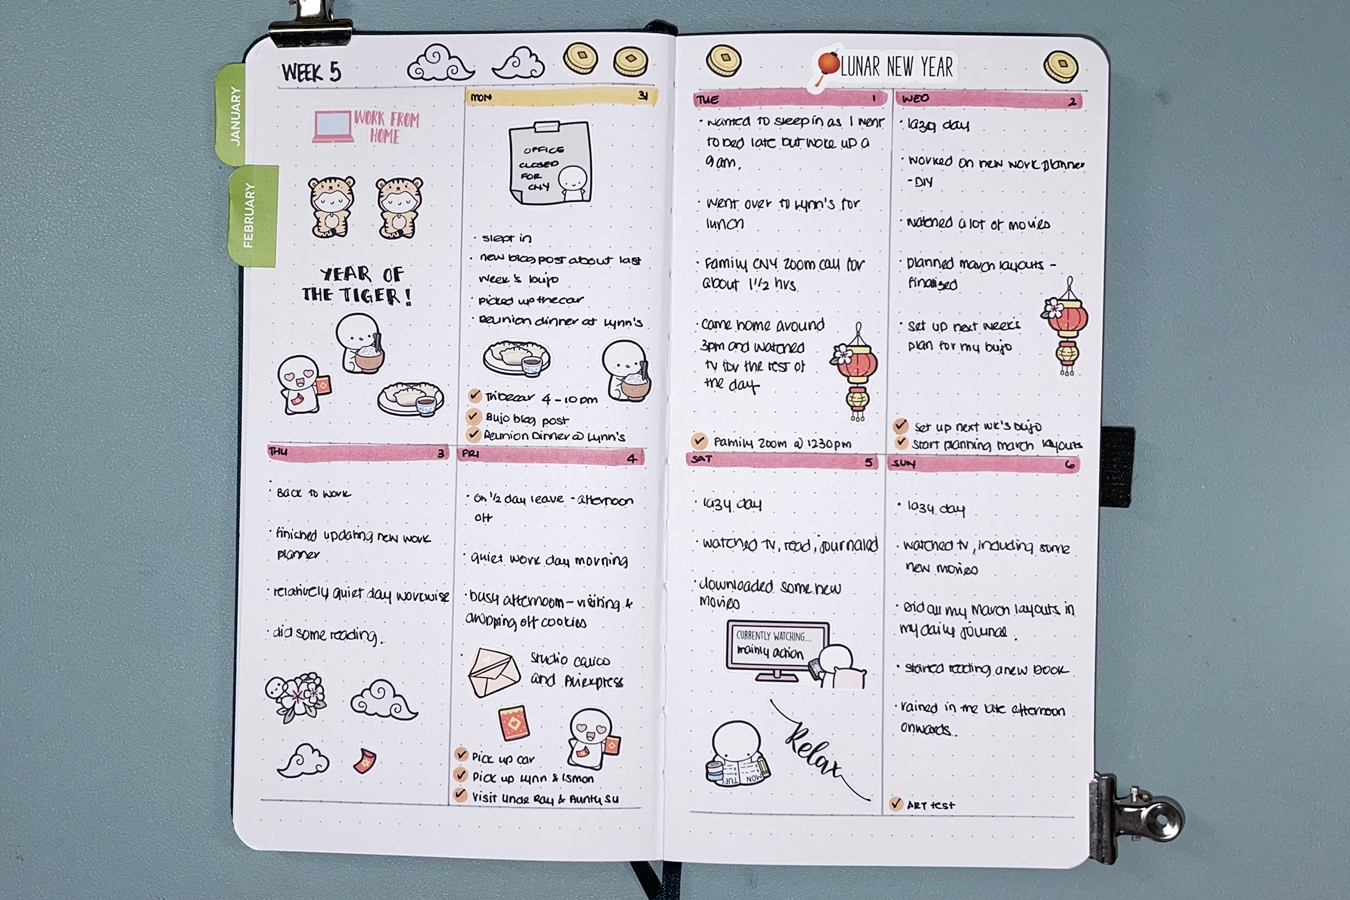 WEEK 5
JANUARY
FEBRUARY
WORK FROM
HOME
YEAR OF
THE TIGER!
MON 31
OFFICE
CLOSED
FOR
CNY
· slept in
· new blog post about last
week's bujo
· picked up the car
· Reunion dinner at Lynn's
Tribecar 4-10pm
Bujo blog post
Reunion Dinner @ Lynn's
THU 3
· Back to work
· finished updating new work
planner
· relatively quiet day workwise
· did some reading.
FRI 4
· on 1/2 day leave - afternoon
off
· quiet work day morning
· busy afternoon - visiting &
dropping off cookies
studio calico
and Aliexpress
Pick up car
Pick up Lynn & Ismon
Visit Uncle Ray & Aunty Su
LUNAR NEW YEAR
TUE 1
· wanted to sleep in as I went
to bed late but woke up a
9am.
· went over to Lynn's for
lunch
· Family CNY zoom call for
about 1 1/2 hrs.
· came home around
3pm and watched
tv for the rest of
the day
Family zoom @ 1230pm
WED 2
· lazy day
· worked on new work planner
- DIY
· watched a lot of movies
· planned march layouts -
finalised
· set up next week's
plan for my bujo
Set up next wk's bujo
Start planning march layouts
SAT 5
· lazy day
· watched tv, read, journaled
· downloaded some new
movies
CURRENTLY WATCHING...
mainly action
TUE
MON
Relax
SUN 6
· lazy day
· watched tv, including some
new movies
· Did all my March layouts in
my daily journal.
· started reading a new book
· rained in the late afternoon
onwards.
ART test